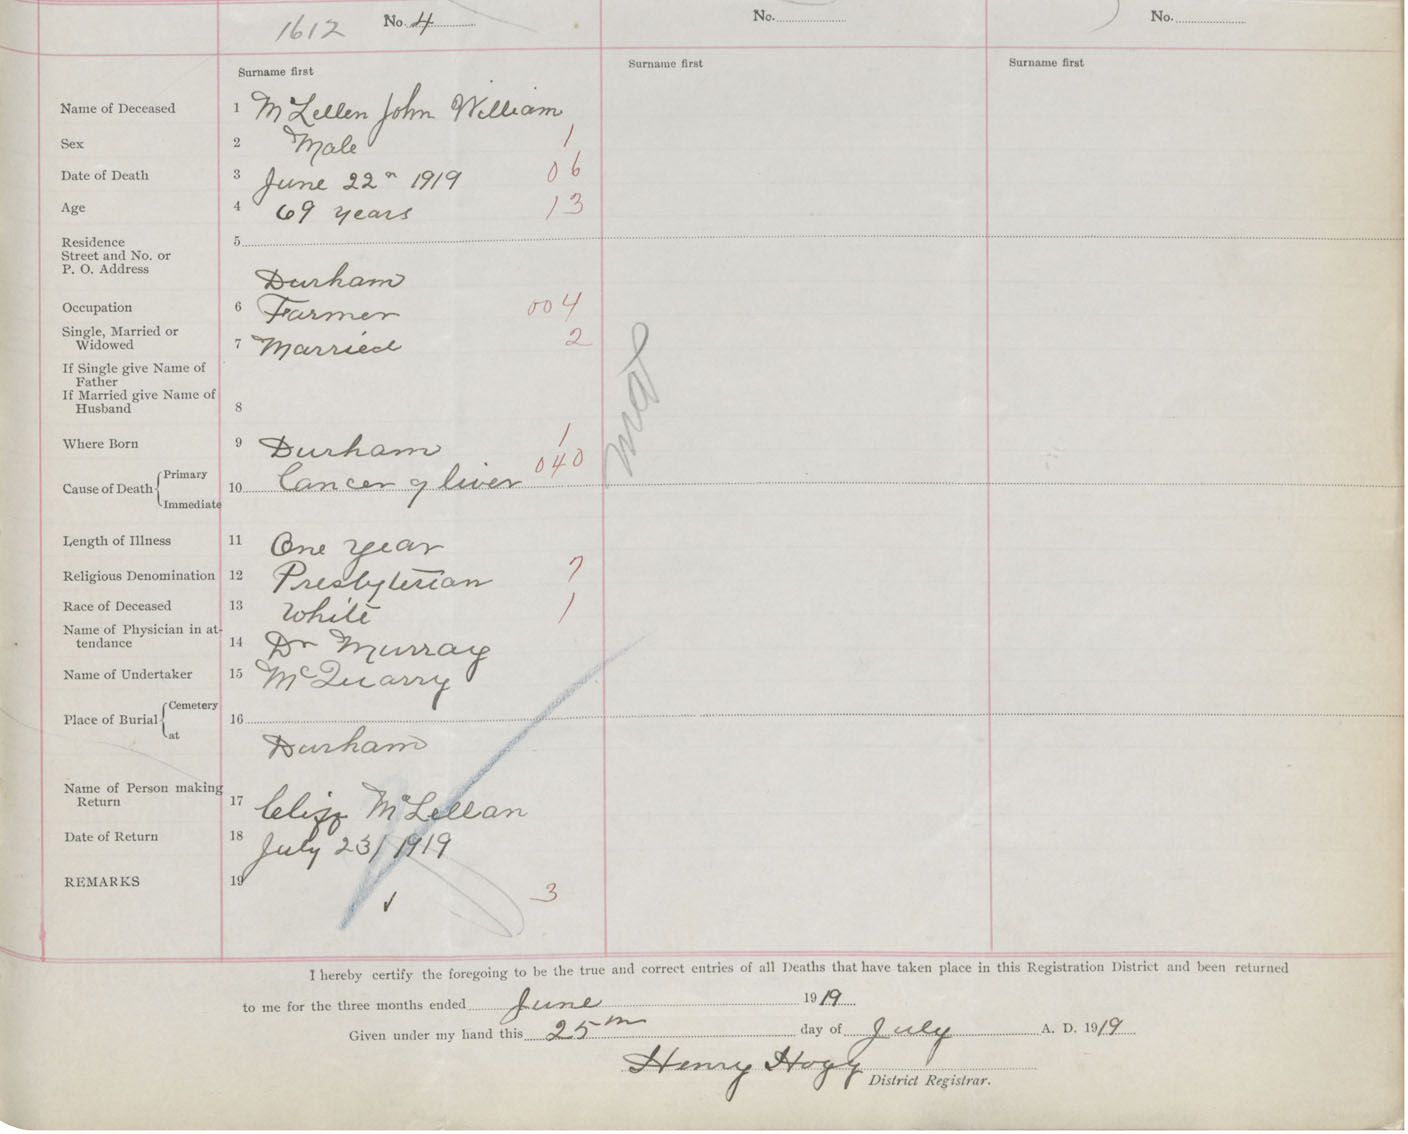 1612 No. 4 No. No.
Surname first Surname first Surname first
Name of Deceased 1 McLellen John William
Sex 2 Male 1
Date of Death 3 June 22n 1919 06
Age 4 69 years 13
Residence 5
Street and No. or
P. O. Address
Durham
Occupation 6 Farmer 004
Single, Married or
Widowed 7 Married 2
If Single give Name of
Father
If Married give Name of
Husband 8
Where Born 9 Durham 1
Cause of Death Primary 040
10 Cancer of liver
Immediate
Length of Illness 11 One year
Religious Denomination 12 Presbyterian 7
Race of Deceased 13 White 1
Name of Physician in at-
tendance 14 Dr Murray
Name of Undertaker 15 McQuarry
Place of Burial Cemetery
16
at
Durham
Name of Person making
Return 17 McLellan
Date of Return 18 July 23/1919
REMARKS 19
✓ 3
I hereby certify the foregoing to be the true and correct entries of all Deaths that have taken place in this Registration District and been returned
to me for the three months ended June 1919
Given under my hand this 25th day of July A. D. 1919
Henry Hogg District Registrar.